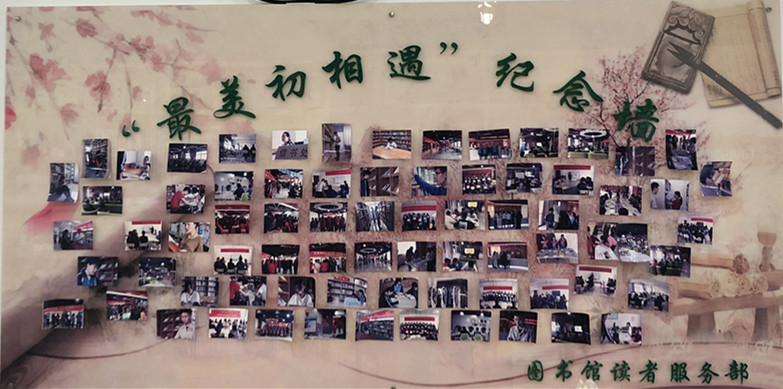 “最美初相遇”纪念墙
图书馆读者服务部